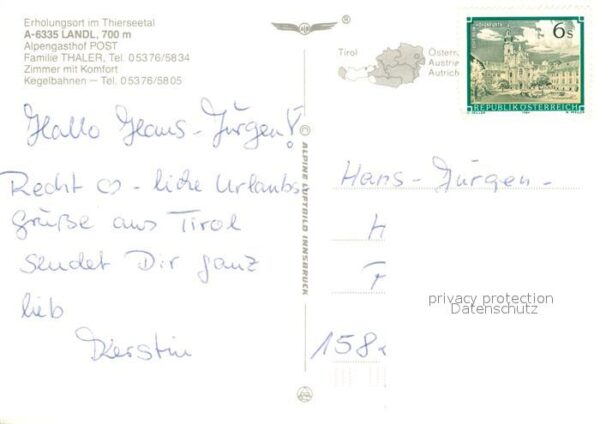 Erholungsort im Thierseetal
A-6335 LANDL, 700 m
Alpengasthof POST
Familie THALER, Tel. 05376/5834
Zimmer mit Komfort
Kegelbahnen – Tel. 05376/5805
Hallo Hans-Jürgen!
Recht ♡-liche Urlaubs-
grüße aus Tirol
sendet Dir ganz
lieb
Kerstin
© ALPINE LUFTBILD INNSBRUCK
®
Tirol
6s
REPUBLIK ÖSTERREICH
Hans-Jürgen-
H
F
158
privacy protection
Datenschutz